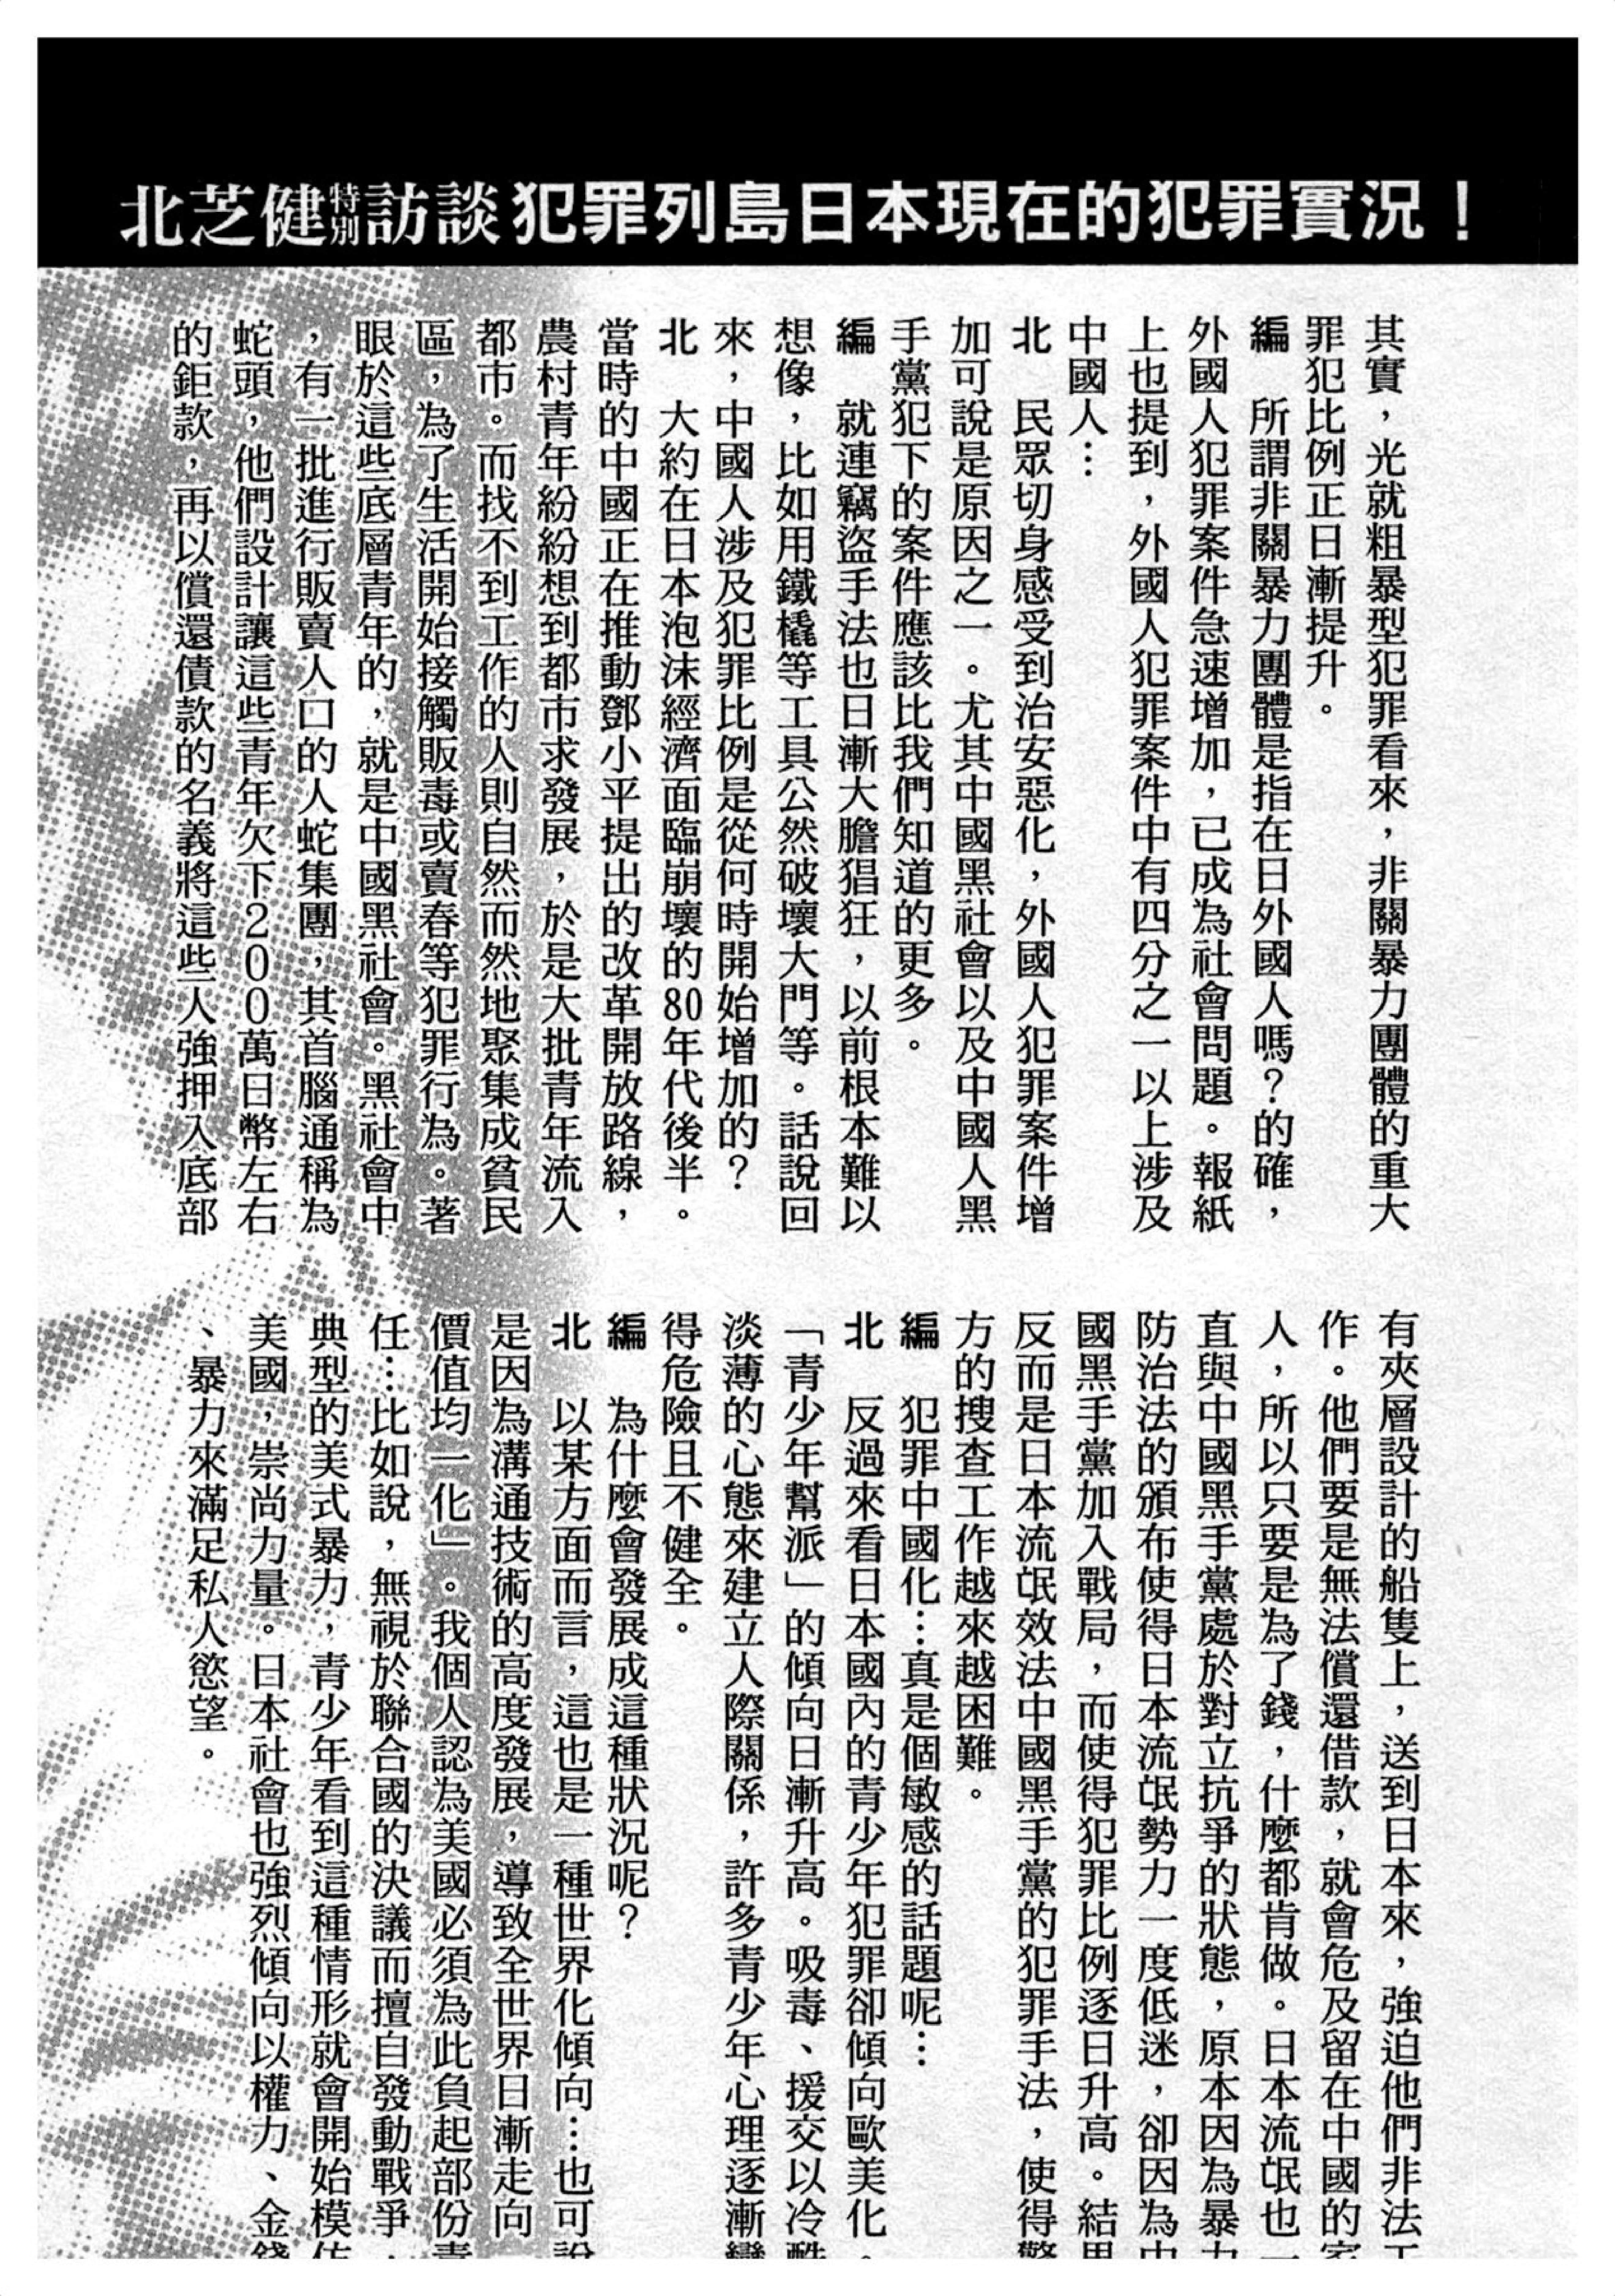 北芝健特別訪談 犯罪列島日本現在的犯罪實況！
其實，光就粗暴型犯罪看來，非關暴力團體的重大
罪犯比例正日漸提升。
編　所謂非關暴力團體是指在日外國人嗎？的確，
外國人犯罪案件急速增加，已成為社會問題。報紙
上也提到，外國人犯罪案件中有四分之一以上涉及
中國人…
北　民眾切身感受到治安惡化，外國人犯罪案件增
加可說是原因之一。尤其中國黑社會以及中國人黑
手黨犯下的案件應該比我們知道的更多。
編　就連竊盜手法也日漸大膽猖狂，以前根本難以
想像，比如用鐵橇等工具公然破壞大門等。話說回
來，中國人涉及犯罪比例是從何時開始增加的？
北　大約在日本泡沫經濟面臨崩壞的80年代後半。
當時的中國正在推動鄧小平提出的改革開放路線，
農村青年紛紛想到都市求發展，於是大批青年流入
都市。而找不到工作的人則自然而然地聚集成貧民
區，為了生活開始接觸販毒或賣春等犯罪行為。著
眼於這些底層青年的，就是中國黑社會。黑社會中
，有一批進行販賣人口的人蛇集團，其首腦通稱為
蛇頭，他們設計讓這些青年欠下２００萬日幣左右
的鉅款，再以償還債款的名義將這些人強押入底部
有夾層設計的船隻上，送到日本來，強迫他們非法工
作。他們要是無法償還借款，就會危及留在中國的家
人，所以只要是為了錢，什麼都肯做。日本流氓也一
直與中國黑手黨處於對立抗爭的狀態，原本因為暴力
防治法的頒布使得日本流氓勢力一度低迷，卻因為中
國黑手黨加入戰局，而使得犯罪比例逐日升高。結果
反而是日本流氓效法中國黑手黨的犯罪手法，使得警
方的搜查工作越來越困難。
編　犯罪中國化…真是個敏感的話題呢…
北　反過來看日本國內的青少年犯罪卻傾向歐美化。
「青少年幫派」的傾向日漸升高。吸毒、援交以冷酷
淡薄的心態來建立人際關係，許多青少年心理逐漸變
得危險且不健全。
編　為什麼會發展成這種狀況呢？
北　以某方面而言，這也是一種世界化傾向…也可說
是因為溝通技術的高度發展，導致全世界日漸走向
價值均一化」。我個人認為美國必須為此負起部份責
任…比如說，無視於聯合國的決議而擅自發動戰爭，
典型的美式暴力，青少年看到這種情形就會開始模仿
美國，崇尚力量。日本社會也強烈傾向以權力、金錢
、暴力來滿足私人慾望。